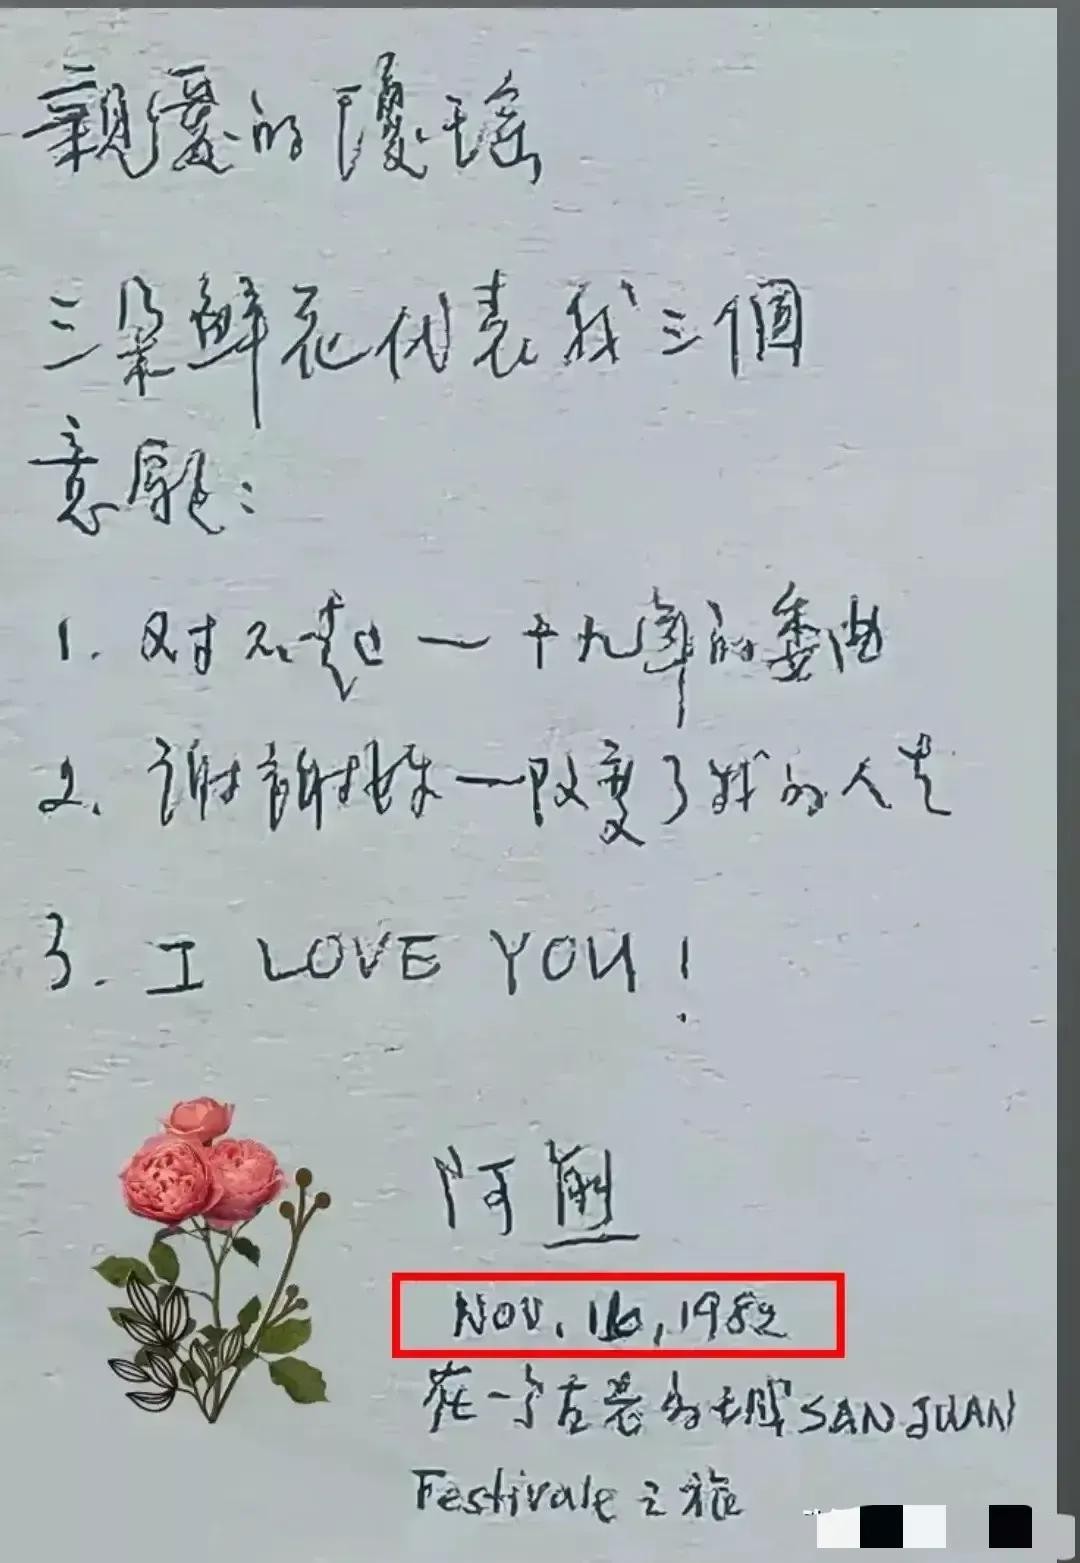 親愛的瓊瑤
三朵鮮花代表我三個
意願:
1. 对不起一十九年的委曲
2. 謝謝妳一改變了我的人生
3. I LOVE YOU!
阿
NOV. 16, 1982
在一个古 的 SAN JUAN
Festivale 之旅